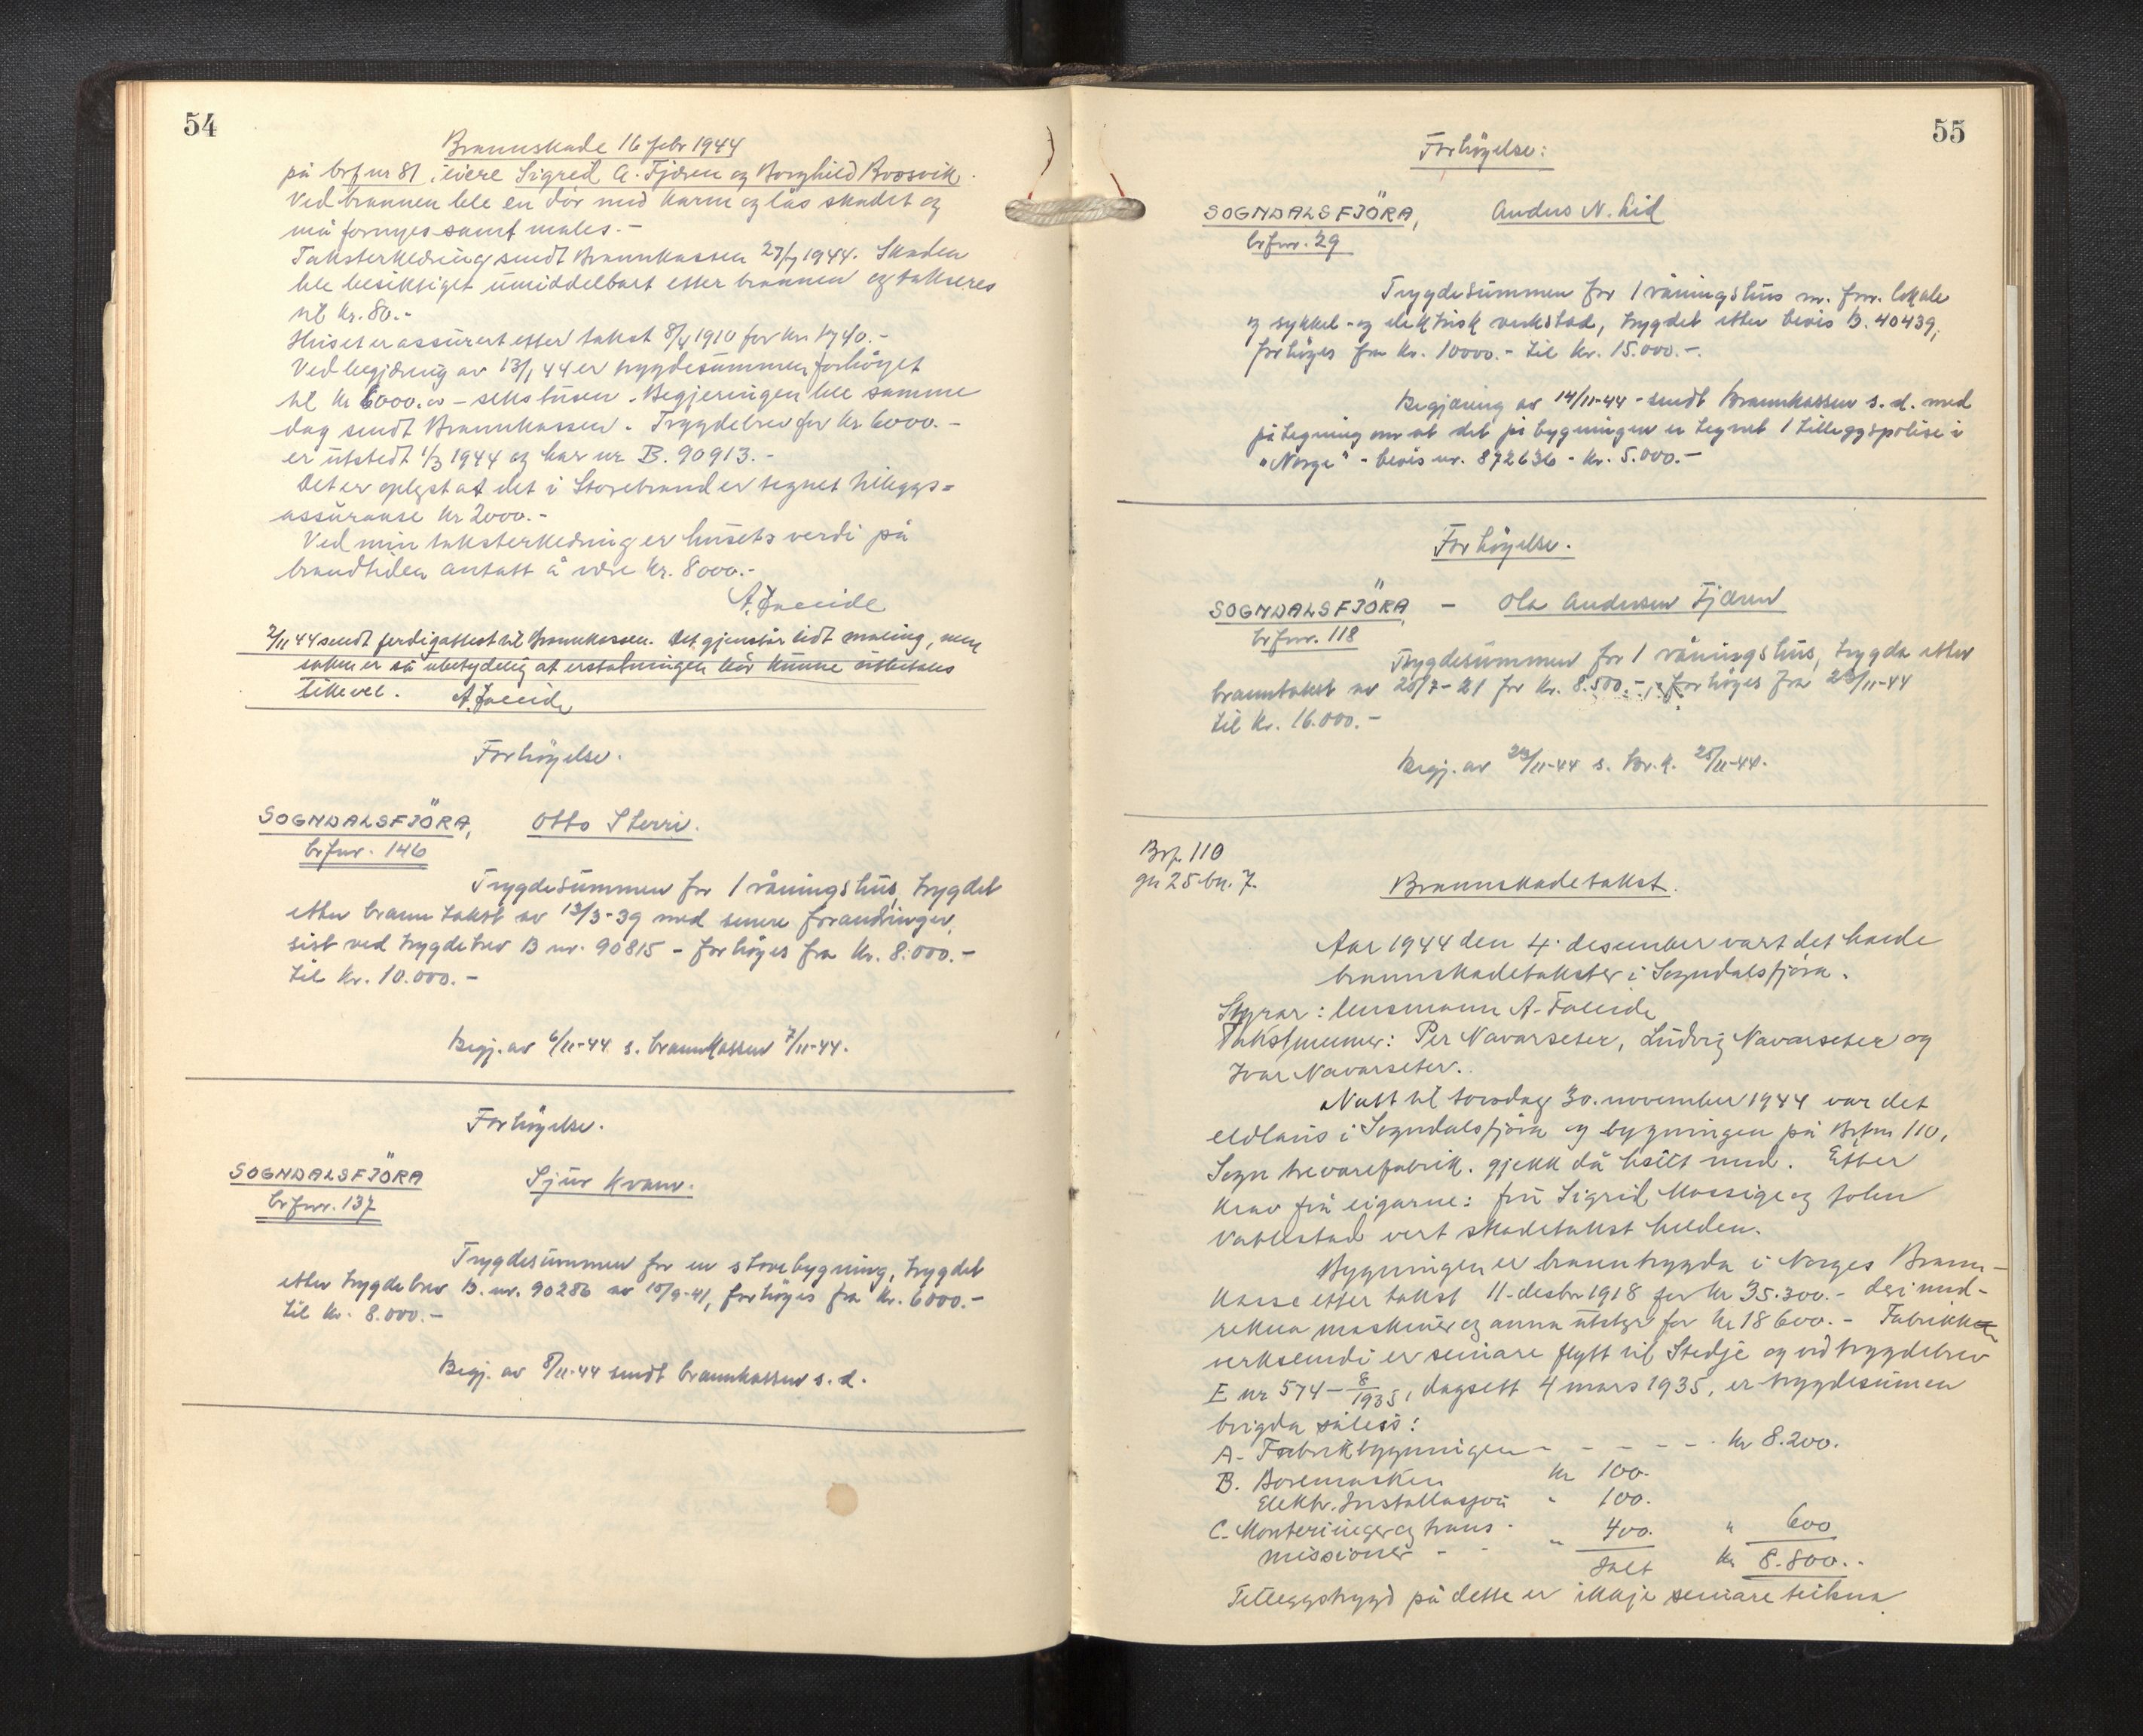 54
Brannskade 16 febr 1944
på brf nr 81, eiere Sigrid A. Fjæren og Borghild Roosvik.
Ved brannen ble en dör med karm og lås skadet og
må fornyes samt males. -
Taksterklæring sendt Brannkassen 1944. Skaden
ble besiktiget umiddelbart etter brannen og takseres
til kr. 80.-
Huset er assurert etter takst 8/4 1910 for kr. 1740.-
Ved begjæring av 13/1 44 er trygdesummen forhöyet
til kr 6000.00 - sekstusen. Begjeringen ble samme
dag sendt Brannkassen. Trygdebrev for kr 6000. -
er utstedt 1/3 1944 og har nr B. 90913.-
Det er oplyst at det i Storebrand er tegnet tilleggs=
assuranse kr 2000.-
Ved min taksterklæring er husets verdi på
brandtiden antatt å være kr. 8000.-
A. Faleide
2/11 44 sendt ferdigattest til Brannkassen. Det gjenstår lidt maling, men
saken er så ubetydelig at erstatningen bör kunne utbetales
likevel. A. Faleide
Forhöyelse.
SOGNDALSFJÖRA, Otto Sterri.
brfnr. 146
Trygdesummen for 1 våningshus, trygdet
etter branntakst av 13/3-39 med senere forandringer,
sist ved trygdebrev B nr. 90815 - forhöyes fra kr. 8.000.-
til kr. 10.000.-
Begj. av 6/11-44 s. brannkassen 7/11-44.
Forhöyelse.
SOGNDALSFJÖRA Sjur Kvam.
brfnr. 137
Trygdesummen for en stovebygning, trygdet
etter trygdebrev B. nr. 90286 av 10/9-41, forhöyes fra kr. 6000.-
til kr. 8.000.-
Begj. av 8/11-44 sendt brannkassen s. d.
55
Forhöyelse:
SOGNDALSFJÖRA, Anders N. Lid
brfnr. 29
Trygdesummen for 1 våningshus m. forr. lokale
og sykkel- og elektrisk verkstad, trygdet etter bevis B. 40439,
forhöyes fra kr. 10000.- til kr. 15.000.-.
Begjæring av 14/11-44 - sendt Brannkassen s. d. med
påtegning om at det på bygningen er tegnet 1 tilleggspolise i
"Norge" - bevis nr. 872636 - kr. 5.000.-
Forhöyelse.
SOGNDALSFJÖRA - Ola Andersen Fjæren
brfnr. 118
Trygdesummen for 1 våningshus, trygda etter
branntakst av 20/7-21 for kr. 8.500.-, forhöyes fra 23/11-44
til kr. 16.000.-
Begj. av 23/11-44 s. Br. k. 25/11-44.
Brf. 110
gn 25 bn. 7.
Brannskadetakst.
Aar 1944 den 4. desember vart det halde
brannskadetakster i Sogndalsfjöra.
Styrar: lensmann A. Faleide
Takstmenner: Per Navarseter, Ludvig Navarseter og
Ivar Navarseter.
Natt til torsdag 30. november 1944 var det
eldlaus i Sogndalsfjöra og bygningen på Brfnr 110,
Sogn trevarefabrik. gjekk då heilt med. Etter
krav frå eigarne: fru Sigrid Mossige og John
Vatlestad vert skadetakst helden.
Bygningen er branntrygda i Norges Brann-
kasse etter takst 11-desbr 1918 for kr 35.300.- deri med-
rekna maskiner og anna utstyr for kr 18600.- Fabrikk
verksemdi er seinare flytt til Stedje og ved trygdebrev
E nr 574 - 8/1935, dagsett 4 mars 1935, er trygdesumen
brigda såleis:
A. Fabrikbygningen - - - - - kr 8.200.
B. Boremaskin kr 100.
Elektr. Installasjon " 100.
C. Monteringer og trans-
missioner - - " 400. " 600
Ialt kr 8.800.-
Tilleggstrygd på dette er ikkje seinare teikna